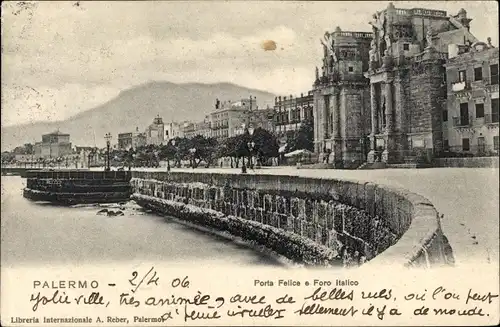 PALERMO - 2/4 06
Porta Felice e Foro Italico
Jolie ville, très animée, avec de belles rues, où l'on
Libreria Internazionale A. Reber, Palermo.
peine circuler tellement il y a de monde.